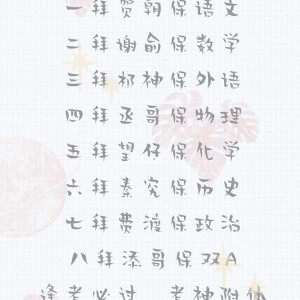 一拜贺朝保语文
二拜谢俞保数学
三拜祁神保外语
四拜丞哥保物理
五拜望仔保化学
六拜秦究保历史
七拜费渡保政治
八拜添哥保双A
逢考必过 考神附体